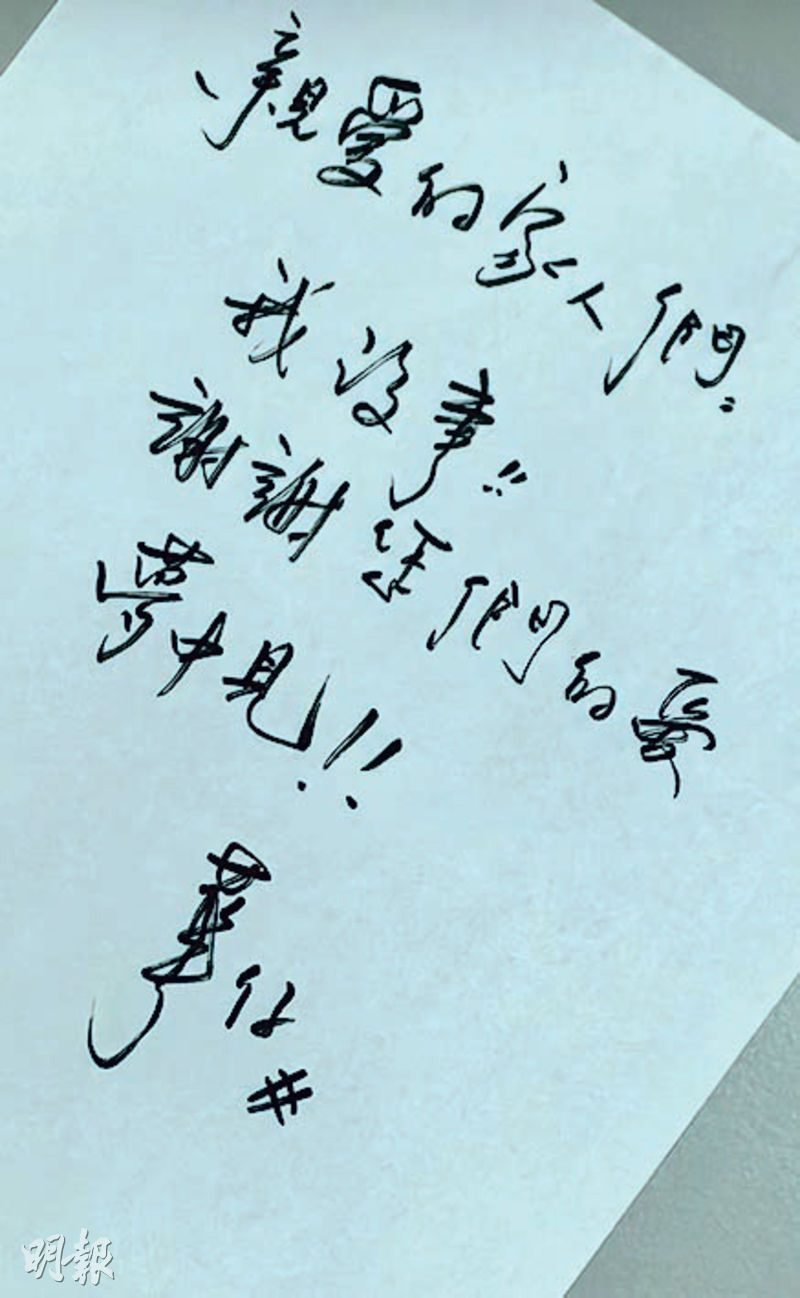 親愛的家人們：
我沒事!!
謝謝您們的愛
夢中見!!
華仔
#
明報